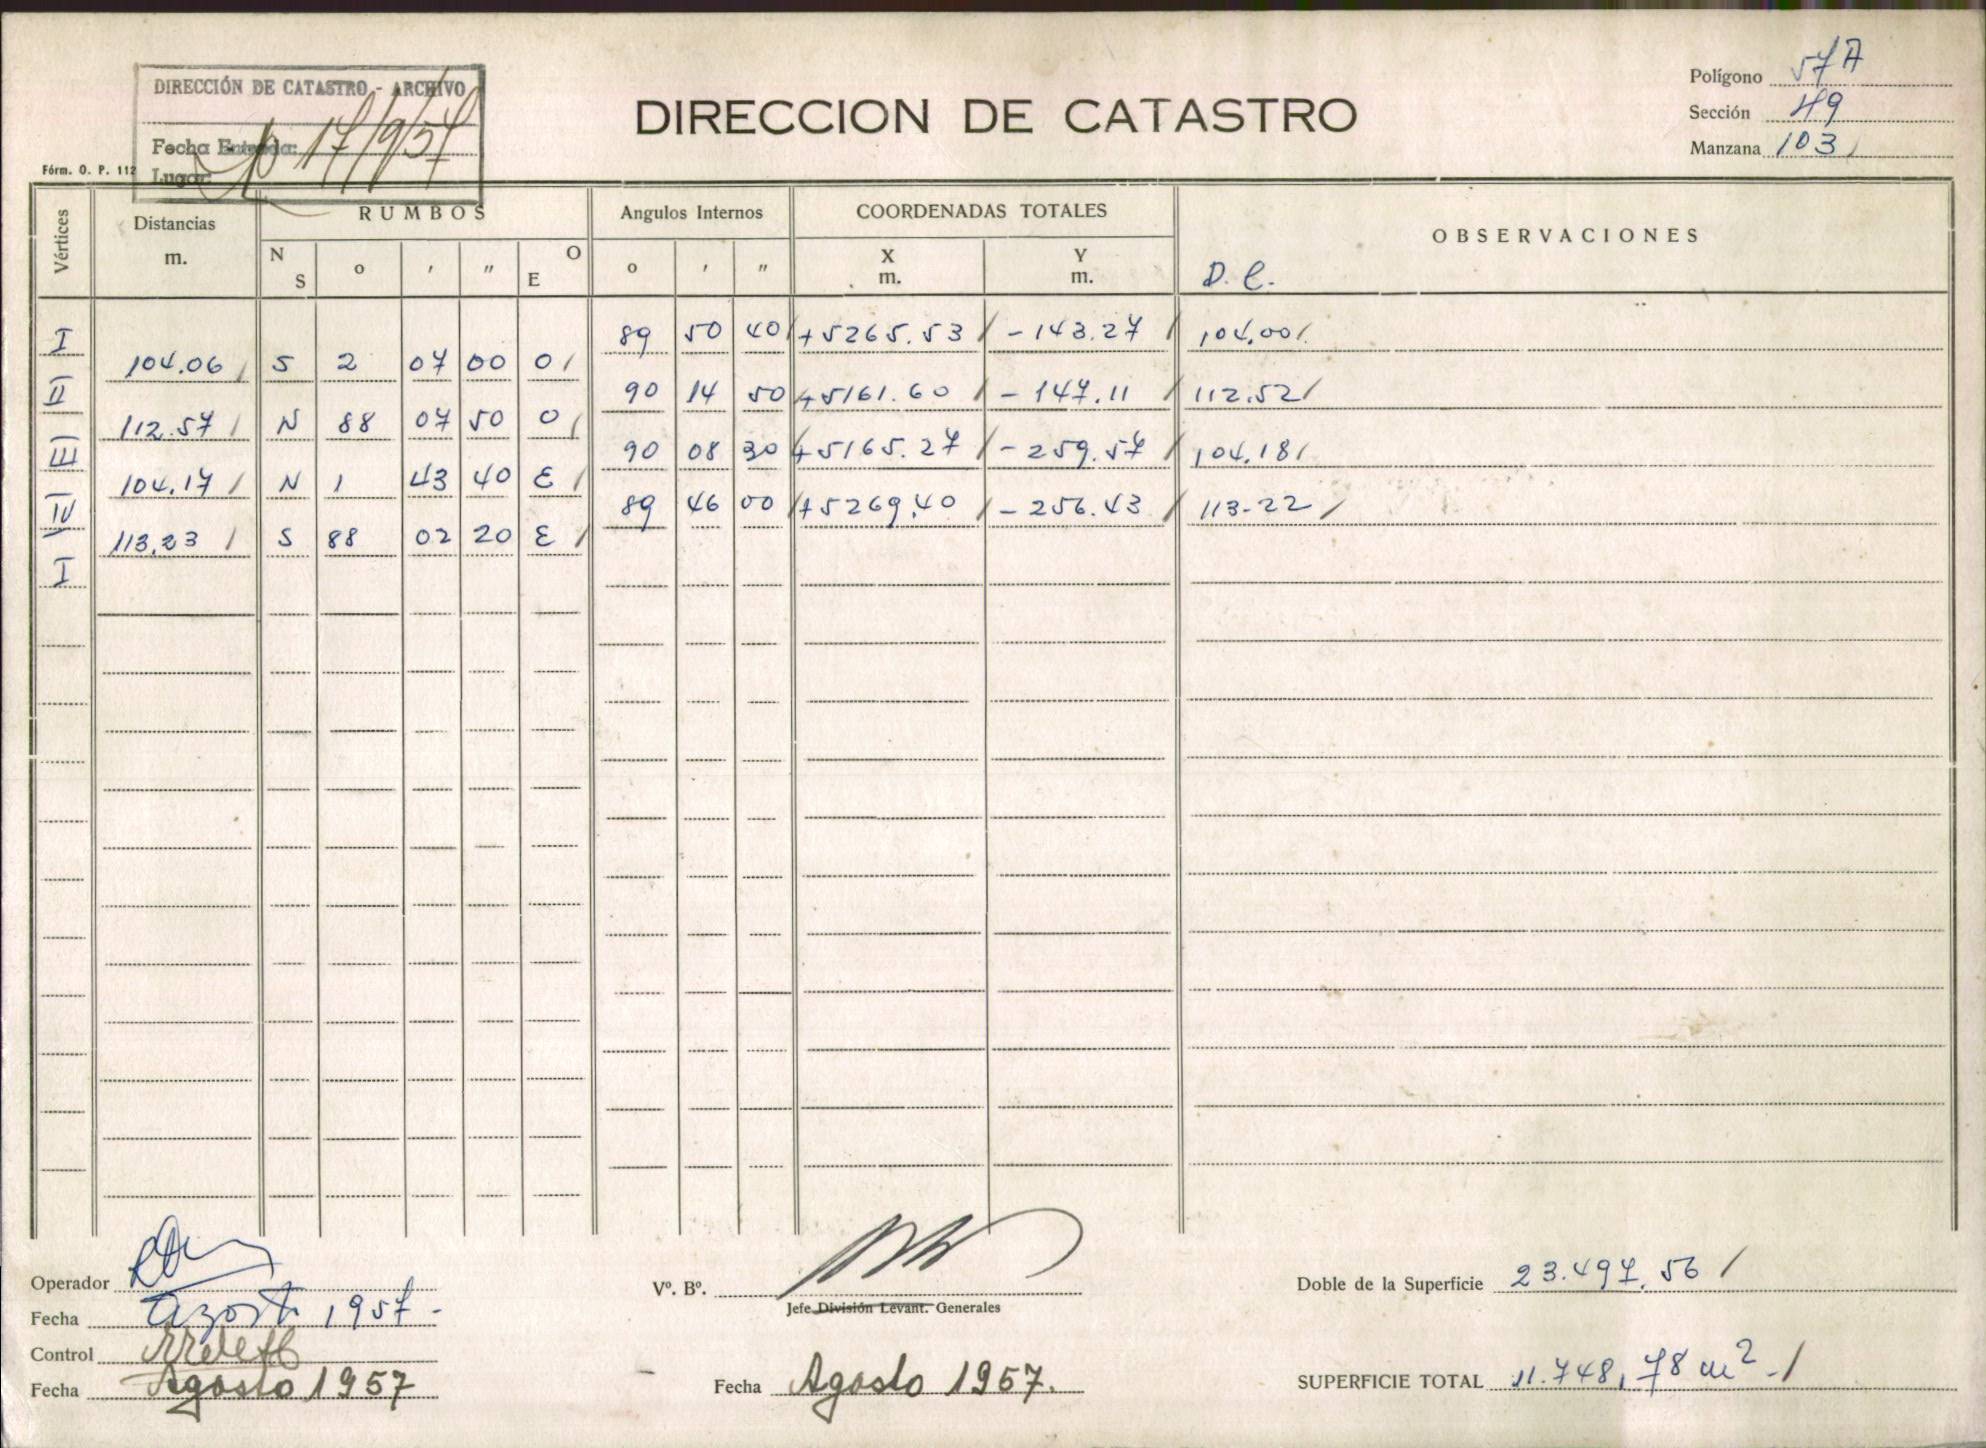 DIRECCIÓN DE CATASTRO - ARCHIVO
Fecha Entrada: 17/9/57
Lugar:
Fórm. O. P. 112
DIRECCION DE CATASTRO
Polígono 57A
Sección 49
Manzana 103
Vértices Distancias m. RUMBOS Angulos Internos COORDENADAS TOTALES OBSERVACIONES
N S o ' " O E o ' " X m. Y m. D. C.
I 89 50 40 +5265.53 -143.27 104.00
104.06 S 2 07 00 O
II 90 14 50 +5161.60 -147.11 112.52
112.57 N 88 07 50 O
III 90 08 30 +5165.27 -259.57 104.18
104.17 N 1 43 40 E
IV 89 46 00 +5269.40 -256.43 113-22
113.23 S 88 02 20 E
I
Operador
Fecha Agosto 1957-
Control
Fecha Agosto 1957
Vº. Bº.
Jefe División Levant. Generales
Fecha Agosto 1957.
Doble de la Superficie 23.497.56
SUPERFICIE TOTAL 11.748,78 m2-